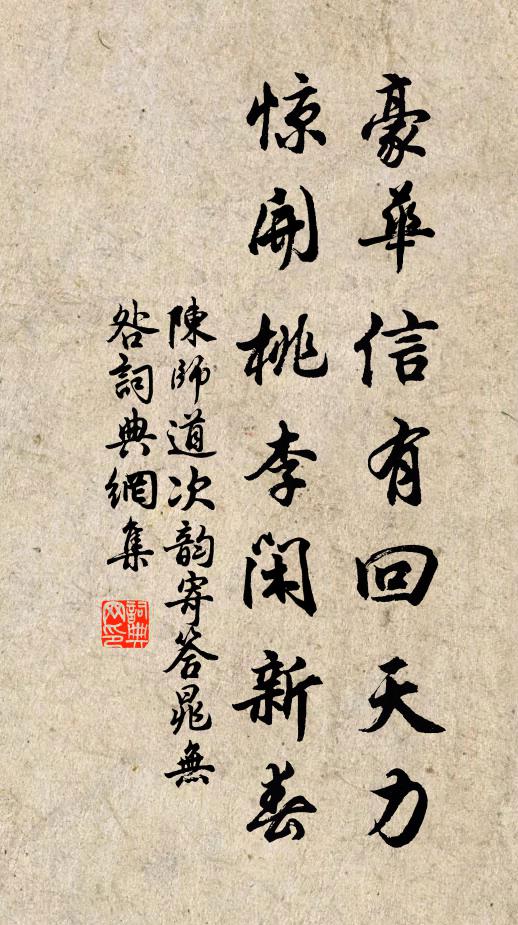 豪華信有回天力
惊開桃李閑新春
陳師道次韵寄答晁無
咎詞典網集
詞典网印